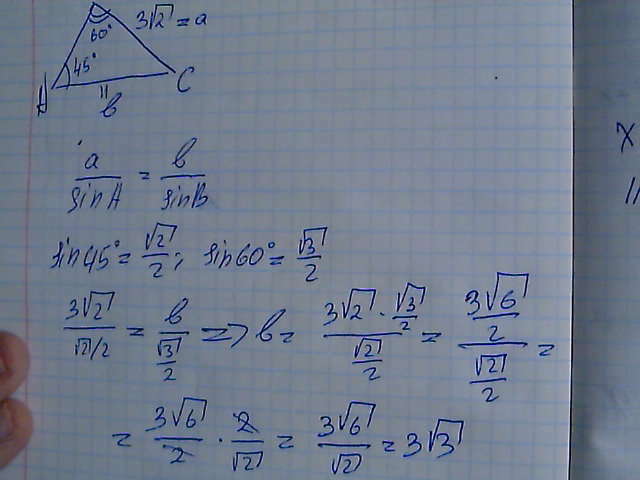 60° 3√2 = a
45°
A C
b
a/sinA = b/sinB
sin45° = √2/2; sin60° = √3/2
3√2/(√2/2) = b/(√3/2) => b = (3√2 · √3/2)/(√2/2) = (3√6/2)/(√2/2) =
= 3√6/2 · 2/√2 = 3√6/√2 = 3√3